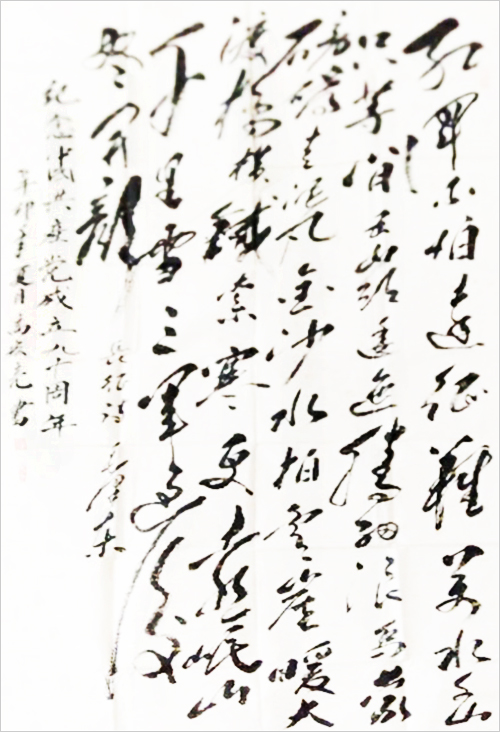 红軍不怕远征難万水千山
只等闲五岭逶迤腾细浪乌蒙
磅礴走泥丸金沙水拍雲崖暖大
渡橋横鐵索寒更喜岷山
千里雪三軍过后
尽开颜 长征诗 毛泽东
纪念中国共产党成立九十周年
辛卯年夏月高亮书